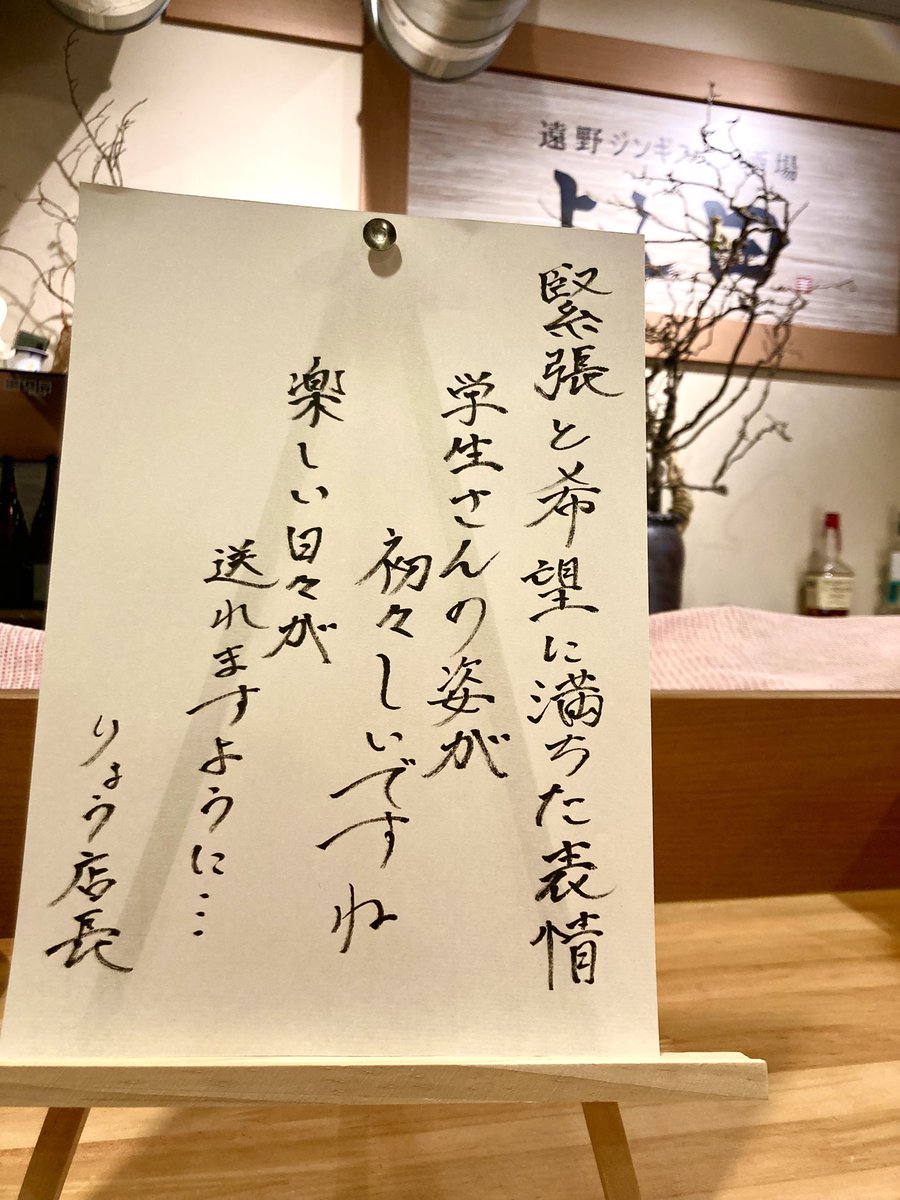 緊張と希望に満ちた表情
学生さんの姿が
初々しいですね
楽しい日々が
送れますように…
りょう店長
遠野ジンギス
酒場